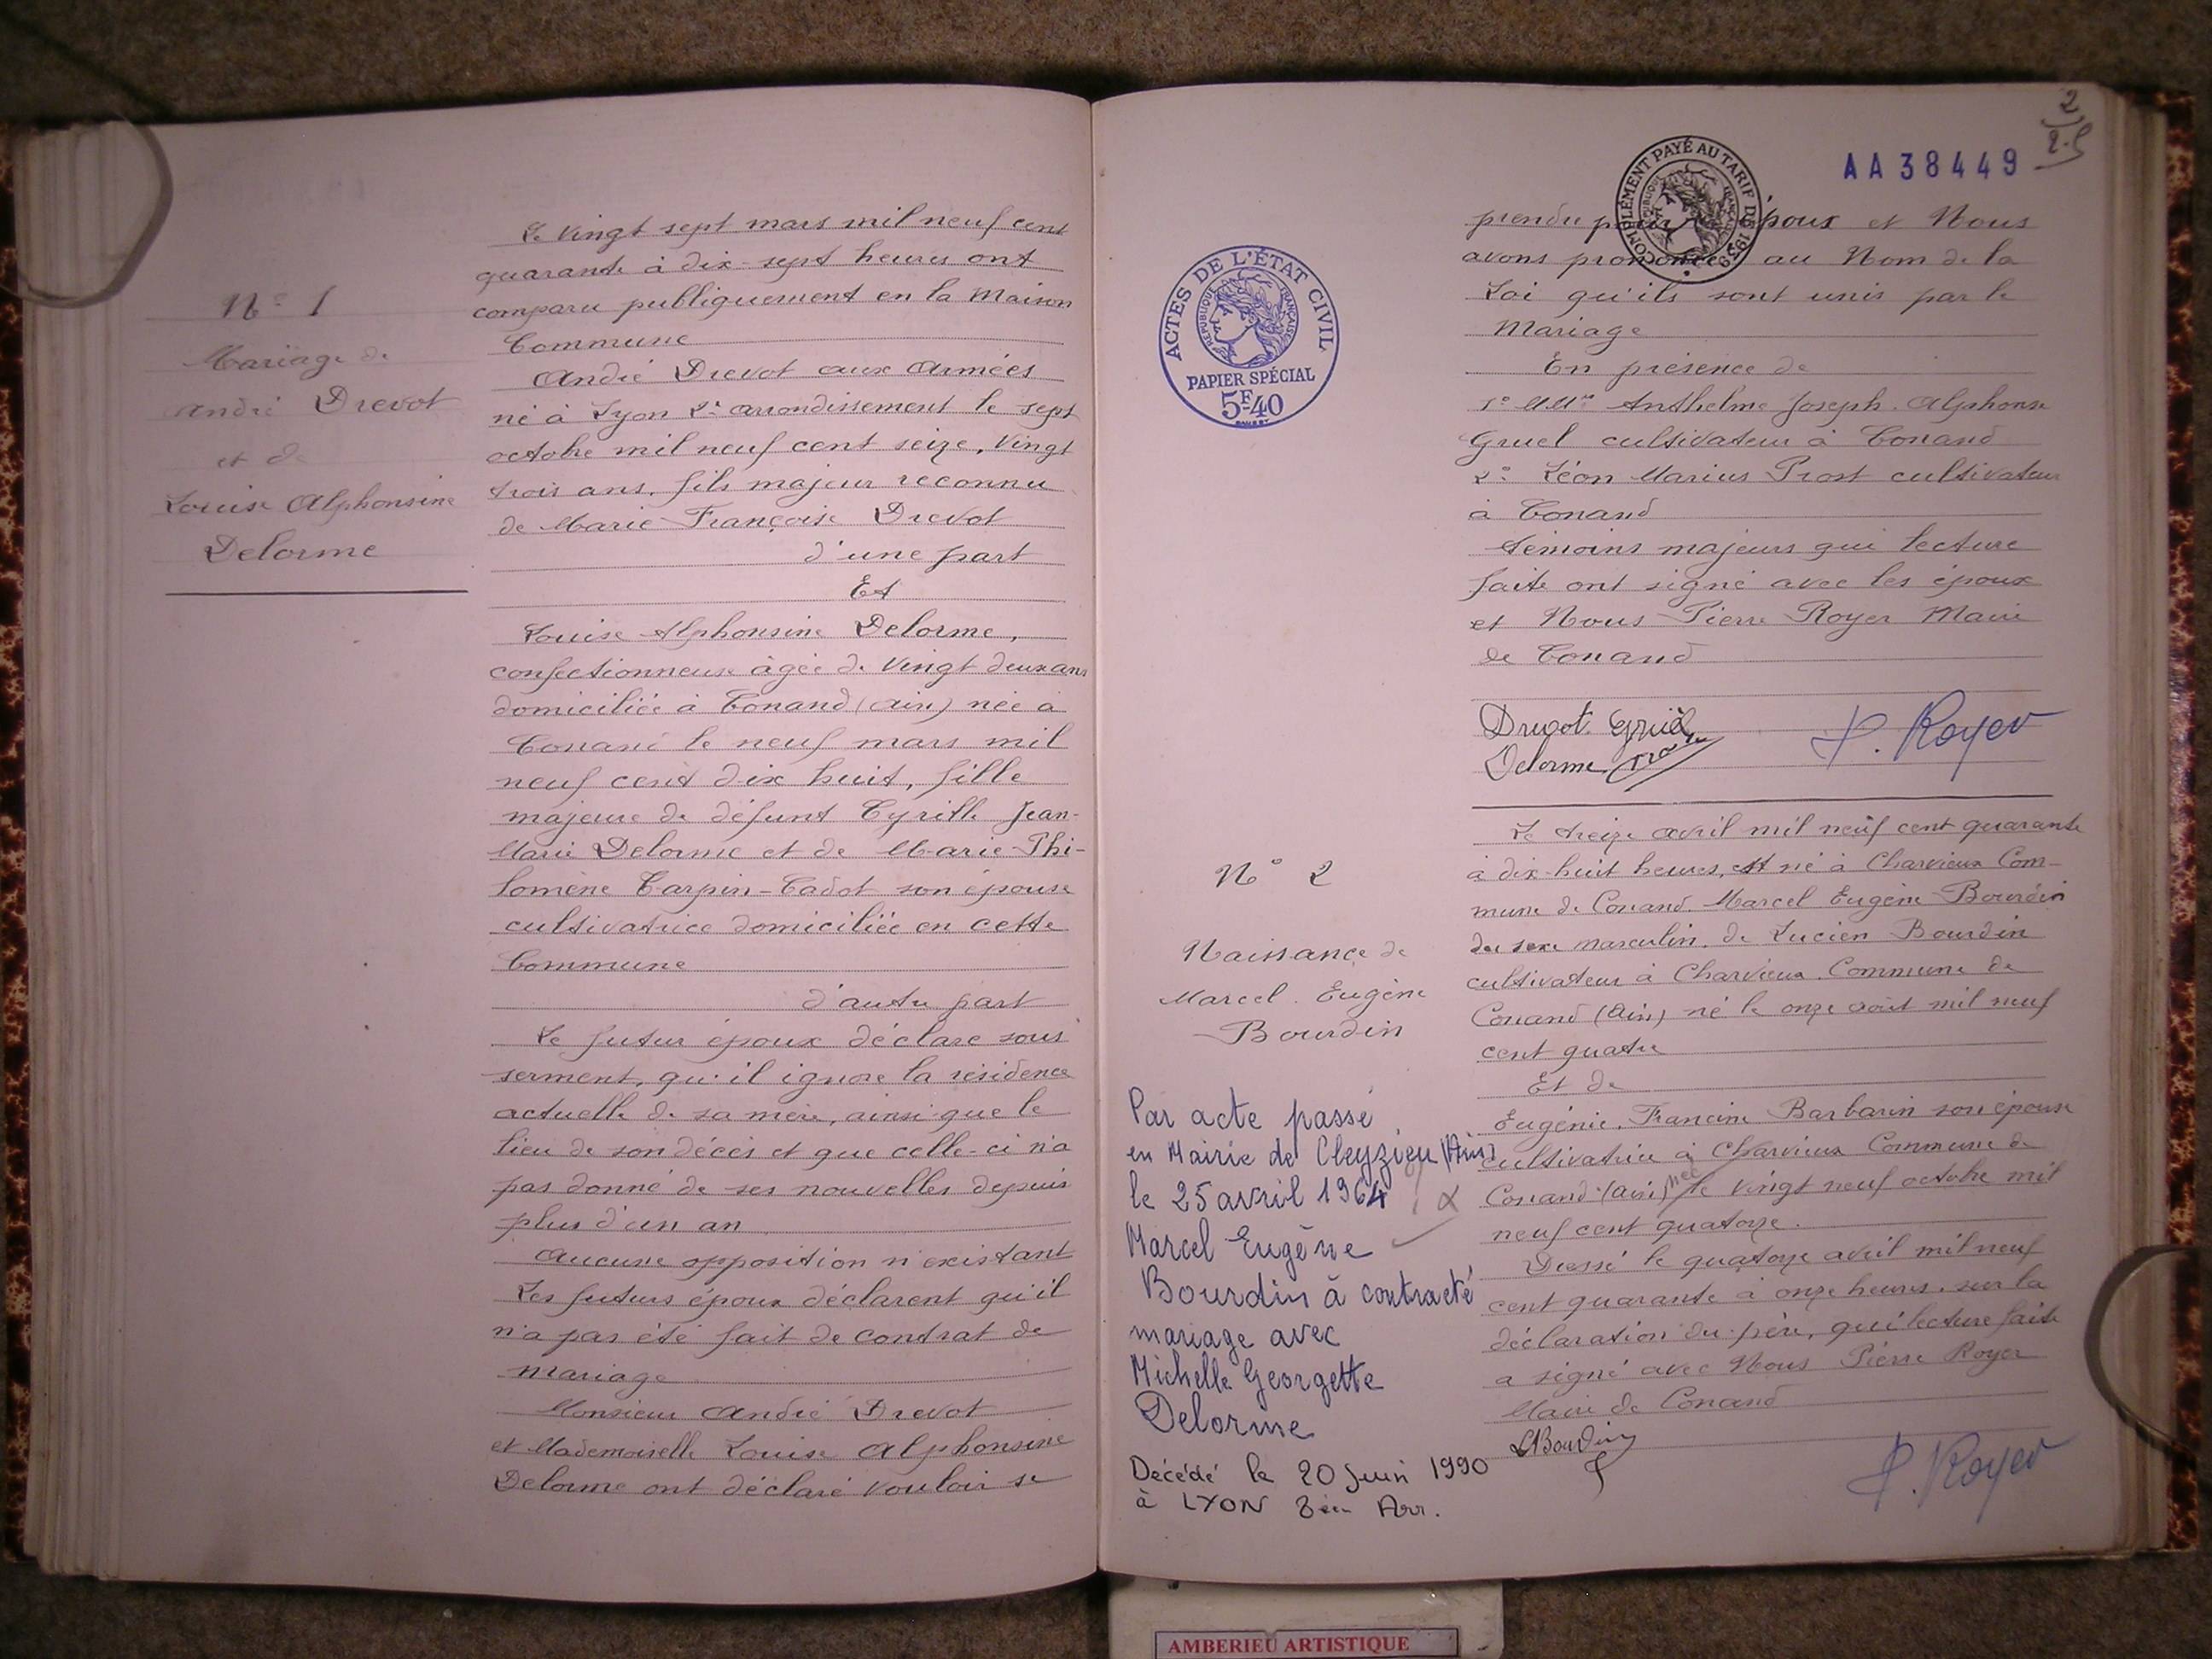 N° 1
Mariage de
André Drevot
et de
Louise Alphonsine
Delorme
Le vingt sept mars mil neuf cent
quarante à dix-sept heures ont
comparu publiquement en la Maison
Commune
André Drevot aux Armées
né à Lyon 2e arrondissement le sept
octobre mil neuf cent seize, vingt
trois ans, fils majeur reconnu
de Marie Françoise Drevot
d'une part
Et
Louise Alphonsine Delorme,
confectionneuse âgée de vingt deux ans
domiciliée à Conand (Ain) née à
Conand le neuf mars mil
neuf cent dix huit, fille
majeure de défunt Cyrille Jean-
Marie Delorme et de Marie-Phi-
lomène Carpin-Cadot son épouse
cultivatrice domiciliée en cette
Commune
d'autre part
Le futur époux déclare sous
serment, qu'il ignore la résidence
actuelle de sa mère, ainsi que le
lieu de son décès et que celle-ci n'a
pas donné de ses nouvelles depuis
plus d'un an
Aucune opposition n'existant
Les futurs époux déclarent qu'il
n'a pas été fait de contrat de
mariage
Monsieur André Drevot
et Mademoiselle Louise Alphonsine
Delorme ont déclaré vouloir se
2
AA38449
COMPLÉMENT PAYÉ AU TARIF DE 1939
RÉPUBLIQUE FRANÇAISE
ACTES DE L'ÉTAT CIVIL
RÉPUBLIQUE FRANÇAISE
PAPIER SPÉCIAL
5F40
prendre pour époux et Nous
avons prononcé au Nom de la
Loi qu'ils sont unis par le
Mariage
En présence de
1° MMrs Anthelme Joseph Alphonse
Gruel cultivateur à Conand
2° Léon Marius Prost cultivateur
à Conand
témoins majeurs qui lecture
faite ont signé avec les époux
et Nous Pierre Royer Maire
de Conand
Drevot Gruel
Delorme Prost
P. Royer
N° 2
Naissance de
Marcel Eugène
Bourdin
Le treize avril mil neuf cent quarante
à dix-huit heures, est né à Charvieux Com-
mune de Conand. Marcel Eugène Bourdin
du sexe masculin, de Lucien Bourdin
cultivateur à Charvieux Commune de
Conand (Ain) né le onze août mil neuf
cent quatre
Et de
Eugénie, Francine Barbarin son épouse
cultivatrice à Charvieux Commune de
Conand (Ain) née le vingt neuf octobre mil
neuf cent quatorze.
Dressé le quatorze avril mil neuf
cent quarante à onze heures, sur la
déclaration du père, qui lecture faite
a signé avec Nous Pierre Royer
Maire de Conand
LBourdin
P. Royer
Par acte passé
en Mairie de Cleyzieu (Ain)
le 25 avril 1964
Marcel Eugène
Bourdin à contracté
mariage avec
Michelle Georgette
Delorme
Décédé le 20 Juin 1990
à LYON 8ème Arr.
AMBERIEU ARTISTIQUE